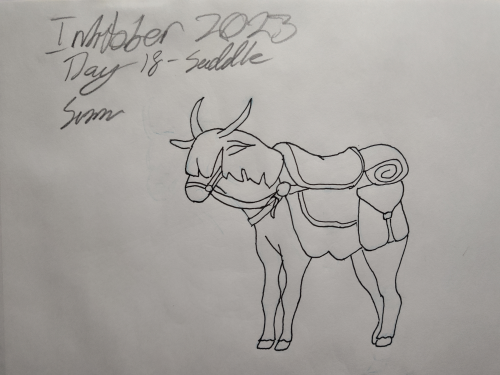 Inktober 2023
Day 18 - Saddle